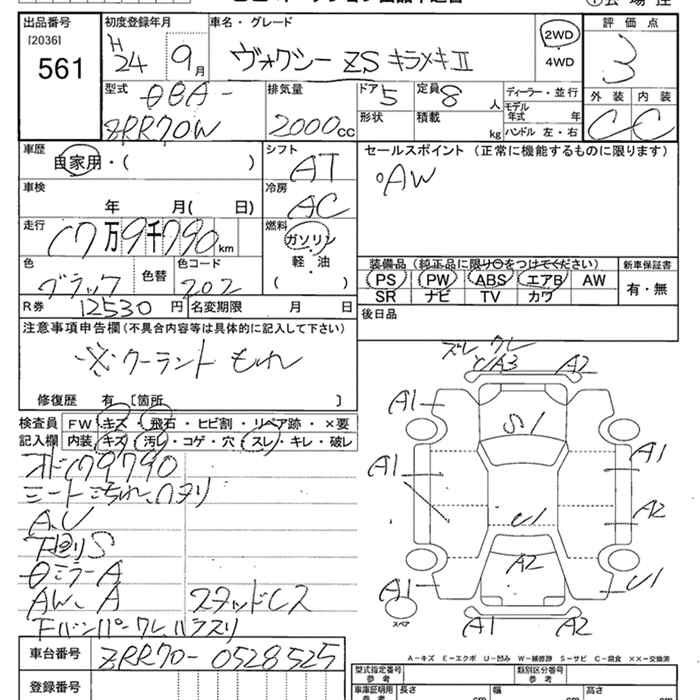 出品番号 [2036] 561
初度登録年月 H24 9月
車名・グレード ヴォクシー ZS キラメキⅡ
2WD
4WD
評価点 3
外装 内装
C C
型式 DBA-
ZRR70W
排気量 2000cc
ドア 5 定員 8人
形状 積載 kg
ディーラー・並行
モデル年式 年
ハンドル 左・右
車歴 自家用・( )
シフト AT
車検 年 月( 日)
冷房 AC
走行 17万9千790km
燃料 ガソリン
軽・油
( )
色 ブラック 色替 色コード 202
R券 12530円 名変期限 月 日
セールスポイント (正常に機能するものに限ります)
°AW
装備品 (純正品に限り○をつけてください) 新車保証書
PS PW ABS エアB AW 有・無
SR ナビ TV カワ
後日品
注意事項申告欄(不具合内容等は具体的に記入して下さい)
※クーラント もれ
修復歴 有 [箇所 ]
検査員 FW キズ・飛石・ヒビ割・リペア跡・×要
記入欄 内装 キズ・汚レ・コゲ・穴・スレ・キレ・破レ
179790
A、U
下回りS
ミラーA
AW、A スタッドレス
ズレ ワレ
A3 A2
A1
S1
A1
A1
A2
U1
A2
A1
U1
スペア
A1 A2
A-キズ E-エクボ U-凹み W-補修跡 S-サビ C-腐食 ××-交換済
車台番号 ZRR70-0528525
登録番号
型式指定番号 参考 類別区分番号 参考
車庫証明用 参考 長さ cm 幅 cm 高さ cm